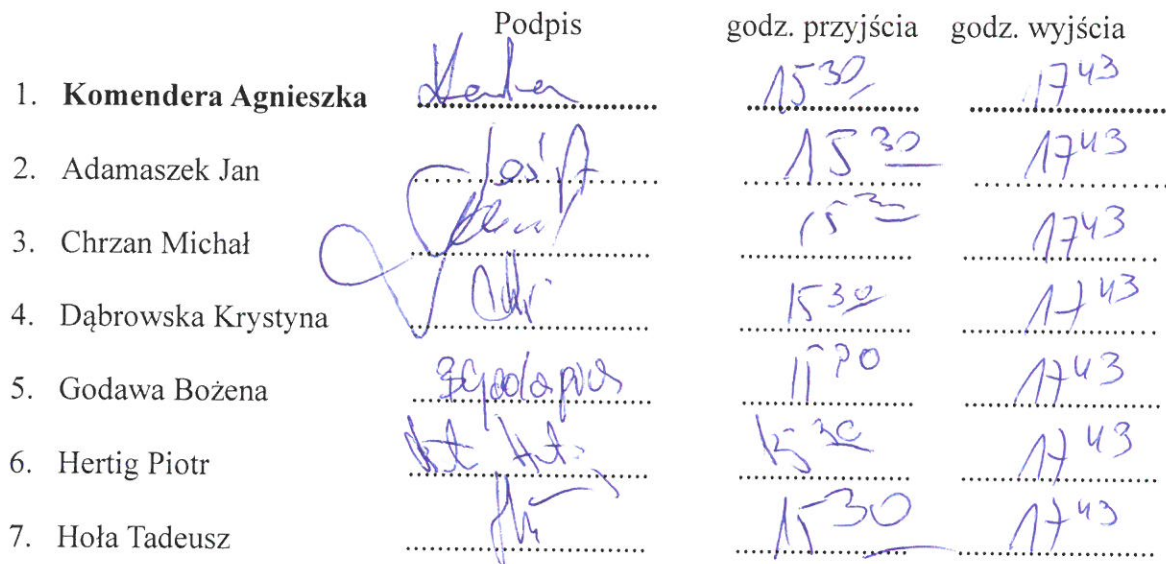 Podpis godz. przyjścia godz. wyjścia
1. Komendera Agnieszka 15 30 17 43
2. Adamaszek Jan 15 30 17 43
3. Chrzan Michał 15 30 17 43
4. Dąbrowska Krystyna 15 30 17 43
5. Godawa Bożena 15 30 17 43
6. Hertig Piotr 15 30 17 43
7. Hoła Tadeusz 15 30 17 43